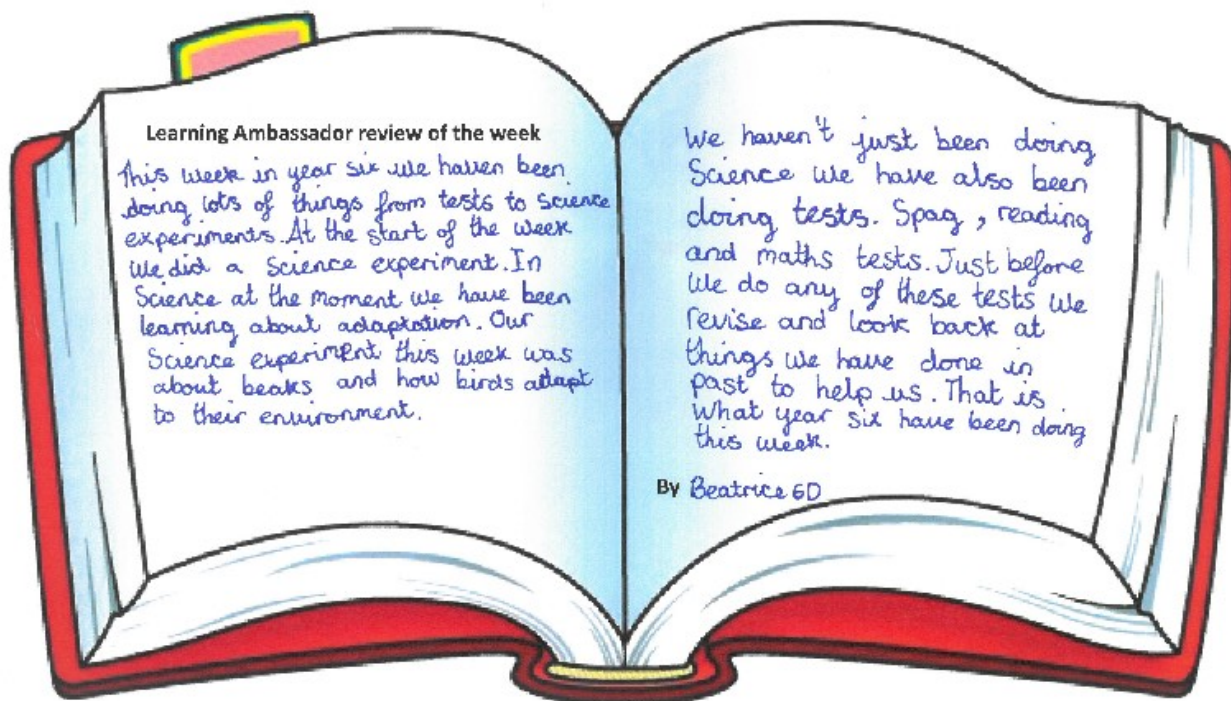 Learning Ambassador review of the week
This week in year six we haven been
doing lots of things from tests to science
experiments. At the start of the week
we did a science experiment. In
Science at the moment we have been
learning about adaptation. Our
Science experiment this week was
about beaks and how birds adapt
to their environment.
We haven't just been doing
Science we have also been
doing tests. Spag, reading
and maths tests. Just before
we do any of these tests we
revise and look back at
things we have done in
past to help us. That is
what year six have been doing
this week.
By Beatrice 6D